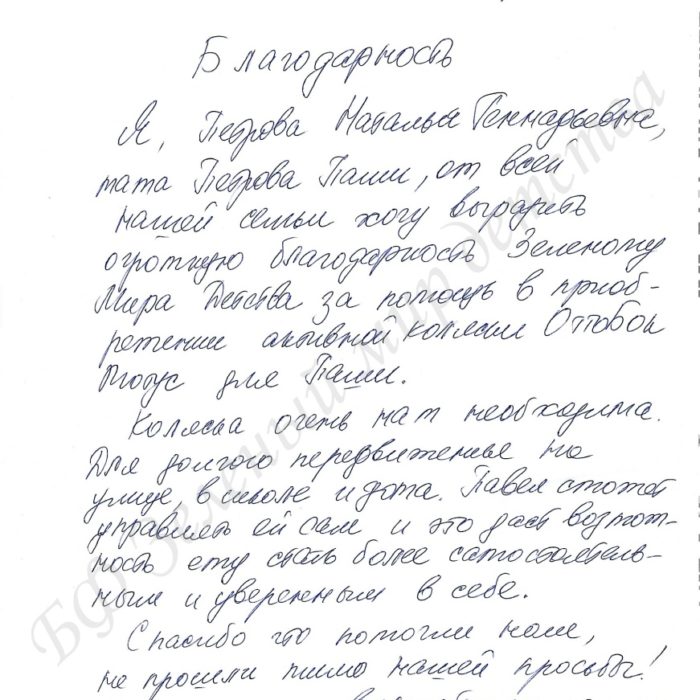 Благодарность
Я, Петрова Наталья Геннадьевна,
мама Петрова Паши, от всей
нашей семьи хочу выразить
огромную благодарность Зеленому
Мира Детства за помощь в приоб-
ретении активной коляски Оттобок
Мотус для Паши.
Коляска очень нам необходима.
Для долгого передвиженье на
улице, в школе и дома. Павел сможет
управлять ей сам и это даст возмож-
ность ему стать более самостоятель-
ным и уверенным в себе.
Спасибо что помогли нам,
не прошли мимо нашей просьбы!
БФ Зеленый мир детства